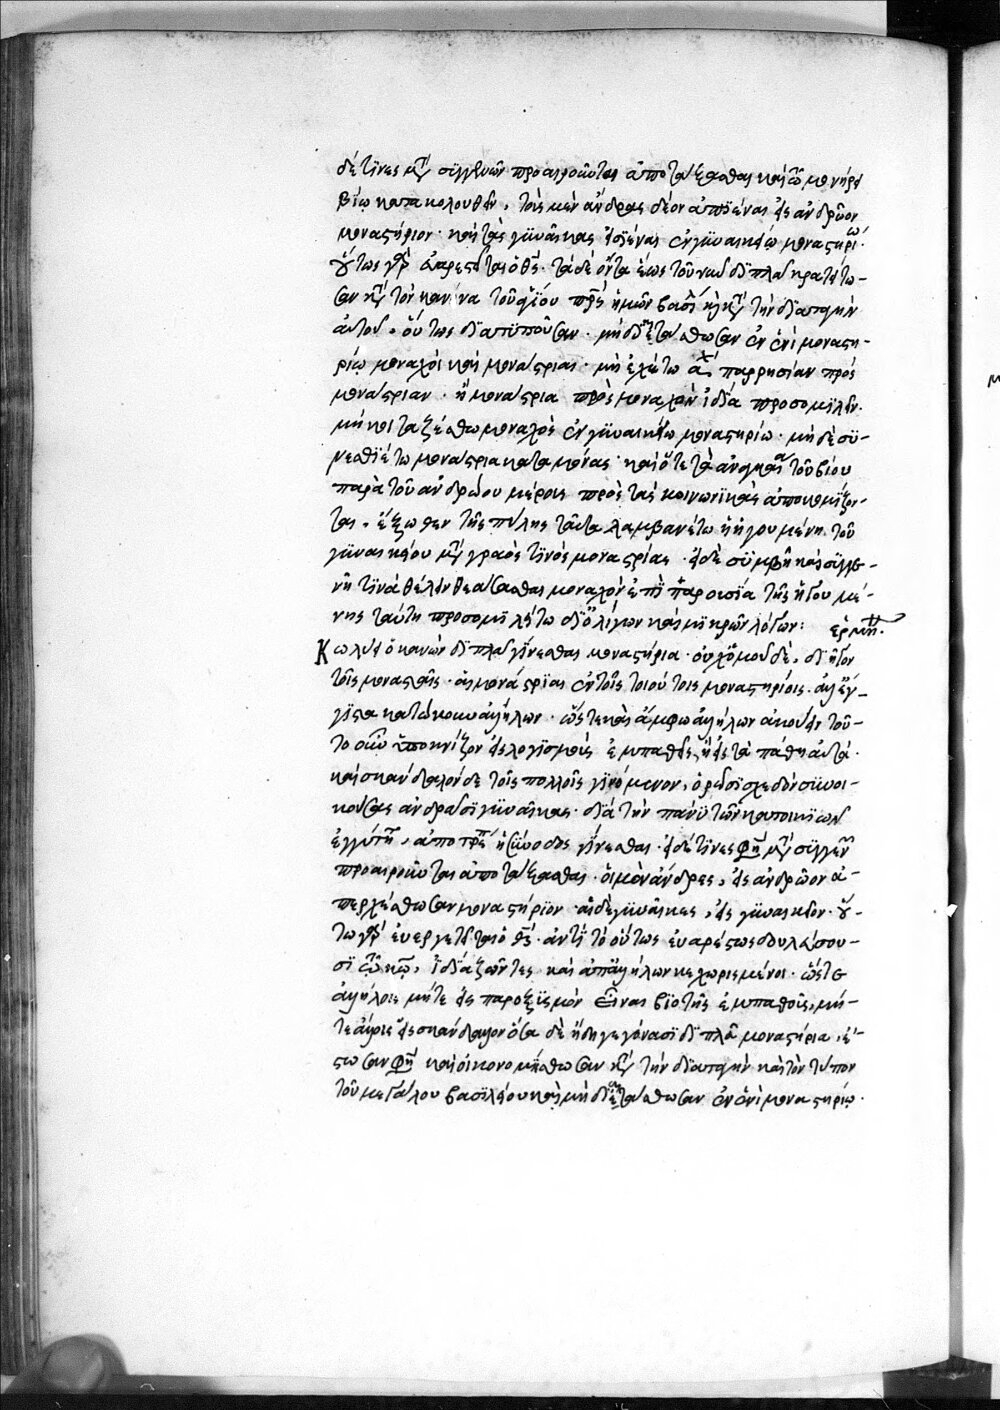 δέ τινες μετὰ συγγενῶν προαιροῦνται ἀποτάξασθαι καὶ τῷ μονήρει
βίῳ κατακολουθεῖν, τοὺς μὲν ἄνδρας δέον ἀπϊέναι εἰς ἀνδρῷον
μοναστήριον· καὶ τὰς γυναῖκας εἰσϊέναι ἐν γυναικείῳ μοναστηρίῳ·
οὕτως γὰρ εὐαρεστεῖται ὁ θς· τὰ δὲ ὄντα ἕως τοῦ νῦν διπλᾶ κρατείτω-
σαν κατὰ τὸν κανόνα τοῦ ἁγίου πρς ἡμῶν βασιλείου κατὰ τὴν διαταγὴν
αὐτοῦ, οὕτως διατυπούσθωσαν· μὴ διαιτάσθωσαν ἐν ἑνὶ μοναστη-
ρίῳ μοναχοὶ καὶ μονάστριαι· μὴ ἐχέτω μοναχὸς παρρησίαν πρὸς
μονάστριαν· ἢ μονάστρια πρὸς μοναχὸν ἰδίᾳ προσομιλεῖν·
μὴ κοιταζέσθω μοναχὸς ἐν γυναικείῳ μοναστηρίῳ· μηδὲ συ-
νεσθιέτω μοναστρία καταμόνας· καὶ ὅτε τὰ ἀναγκαῖα τοῦ βίου
παρὰ τοῦ ἀνδρώου μέρους πρὸς τὰς κανονικὰς ἀποκομίζον-
ται, ἔξωθεν τῆς πύλης ταῦτα λαμβανέτω ἡ ἡγουμένη τοῦ
γυναικείου μετὰ γραὸς τινὸς μοναστρίας· εἰ δὲ συμβῇ καὶ συγγε-
νῆ τινὰ θέλειν θεάσασθαι μοναχὸν ἐπὶ παρουσίᾳ τῆς ἡγουμέ-
νης ταύτῃ προσομιλείτω δι' ὀλίγων καὶ μικρῶν λόγων: ἑρμη.
Κωλύει ὁ κανὼν διπλᾶ γίνεσθαι μοναστήρια· οὐχ ὁμοῦ δὲ, δι' ἧς
τοῖς μονασταῖς· αἱ μονάστριαι ἐν τοῖς τοιούτοις μοναστηρίοις· ἀλλ' ἔγ-
γιστα κατῴκουν ἀλλήλων· ὥστε καὶ ἄμφω ἀλλήλων ἀκούειν τοῦ-
το οὖν ὑποκνίζον εἰς λογισμοὺς ἐμπαθεῖς, ἢ εἰς τὰ πάθη αὐτά·
καὶ σκάνδαλον δὲ τοῖς πολλοῖς γινόμενον, ὁρῶσι σχεδὸν συνοι-
κούσας ἀνδράσι γυναῖκας· διὰ τὴν πάνυ τῶν κατοικιῶν
ἐγγύτητα, ἀποτρέπει ἡ σύνοδος γίνεσθαι· εἰ δέ τινες φησὶ μετὰ συγγενῶν
προαιροῦνται ἀποτάξασθαι· οἱ μὲν ἄνδρες, εἰς ἀνδρῷον ἀ-
περχέσθωσαν μοναστήριον· αἱ δὲ γυναῖκες, εἰς γυναικεῖον· οὕ-
τω γὰρ εὐεργετεῖται ὁ θς· ἀντὶ τὸ οὕτως εὐαρέστως δουλεύου-
σι τῷ κω, ἰδιάζοντες καὶ ἀπ' ἀλλήλων κεχωρισμένοι· ὥστε
ἀλλήλοις μήτε εἰς παροξυσμὸν εἶναι βιοτῆς ἐμπαθοῦς, μή-
τε ἄλλοις εἰς σκάνδαλον ὅσα δὲ ἤδη γεγόνασι διπλᾶ μοναστήρια, ἔ-
στωσαν φησὶ καὶ οἰκονομείσθωσαν κατὰ τὴν διαταγὴν καὶ τὸν τύπον
τοῦ μεγάλου βασιλείου καὶ μὴ διαιτάσθωσαν ἐν ἑνὶ μοναστηρίῳ.